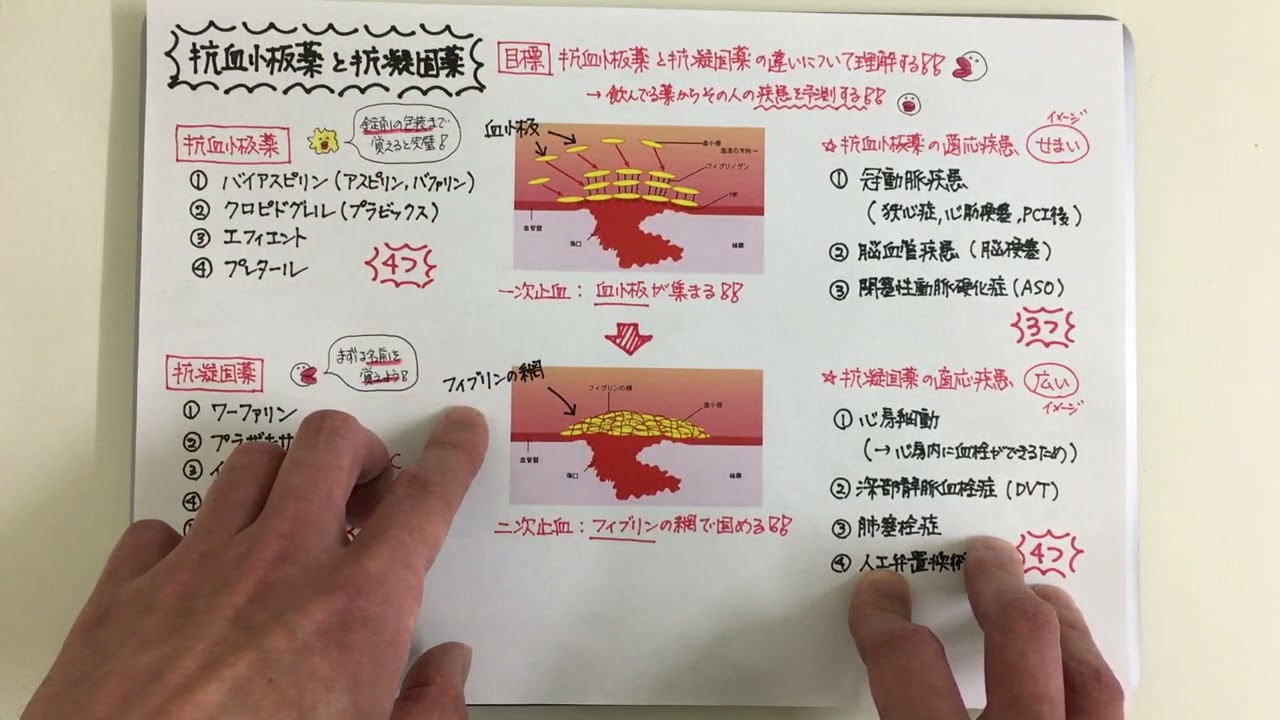 抗血小板薬と抗凝固薬
目標 抗血小板薬と抗凝固薬の違いについて理解する!!
→飲んでる薬からその人の疾患を予測する!!
抗血小板薬
錠剤の包装まで
覚えると完璧!
① バイアスピリン(アスピリン,バファリン)
② クロピドグレル(プラビックス)
③ エフィエント
④ プレタール
4つ
血小板
血小板
血流の方向→
フィブリノゲン
VWF
血管壁
傷口
組織
一次止血:血小板が集まる!!
☆抗血小板薬の適応疾患
イメージ
せまい
① 冠動脈疾患
(狭心症,心筋梗塞,PCI後)
② 脳血管疾患(脳梗塞)
③ 閉塞性動脈硬化症(ASO)
3つ
抗凝固薬
まずは名前を
覚えよう!
① ワーファリン
② プラザキサ
③
④
フィブリンの網
フィブリンの網
血小板
血管壁
傷口
組織
二次止血:フィブリンの網で固める!!
☆抗凝固薬の適応疾患
広い
イメージ
① 心房細動
(→心房内に血栓ができるため)
② 深部静脈血栓症(DVT)
③ 肺塞栓症
④ 人工弁置換術
4つ